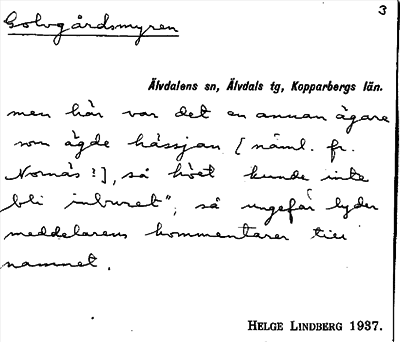 3
Golvgårdsmyren
Älvdalens sn, Älvdals tg, Kopparbergs län.
men här var det en annan ägare
som ägde hässjan [näml. fr.
Nornäs!], så höet kunde inte
bli inburet", så ungefär lyder
meddelarens kommentarer till
namnet.
HELGE LINDBERG 1937.